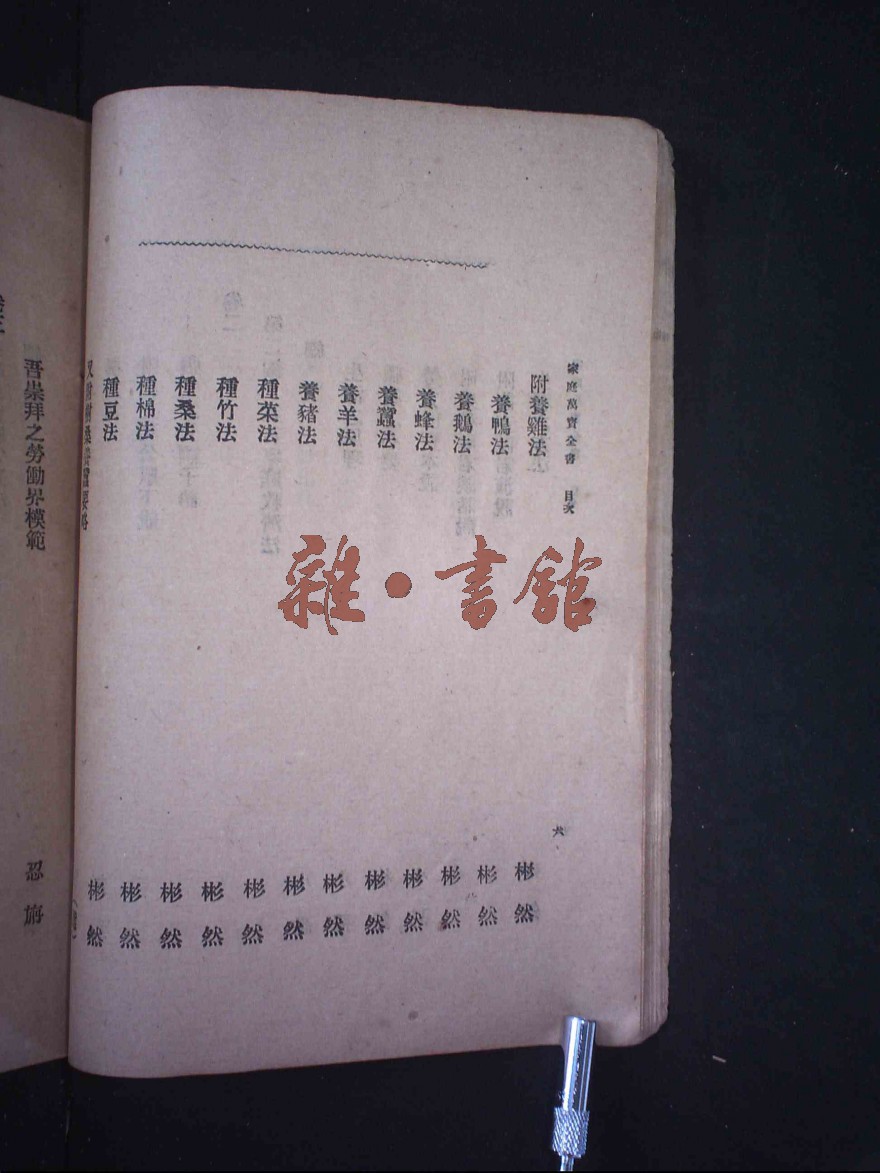 家庭萬寶全書 目次
六
附養雞法 彬然
養鴨法 彬然
養鵝法 彬然
養蜂法 彬然
養蠶法 彬然
養羊法 彬然
養豬法 彬然
種菜法 彬然
種竹法 彬然
種桑法 彬然
種棉法 彬然
種豆法 彬然
吾崇拜之勞働界模範
雜·書館